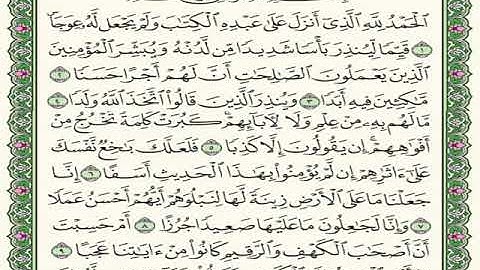 ٱلْحَمْدُ لِلَّهِ ٱلَّذِىٓ أَنزَلَ عَلَىٰ عَبْدِهِ ٱلْكِتَٰبَ وَلَمْ يَجْعَل لَّهُۥ عِوَجَا
١ قَيِّمًا لِّيُنذِرَ بَأْسًا شَدِيدًا مِّن لَّدُنْهُ وَيُبَشِّرَ ٱلْمُؤْمِنِينَ
ٱلَّذِينَ يَعْمَلُونَ ٱلصَّٰلِحَٰتِ أَنَّ لَهُمْ أَجْرًا حَسَنًا ٢
مَّٰكِثِينَ فِيهِ أَبَدًا ٣ وَيُنذِرَ ٱلَّذِينَ قَالُوا۟ ٱتَّخَذَ ٱللَّهُ وَلَدًا ٤
مَّا لَهُم بِهِۦ مِنْ عِلْمٍ وَلَا لِءَابَآئِهِمْ كَبُرَتْ كَلِمَةً تَخْرُجُ مِنْ
أَفْوَٰهِهِمْ إِن يَقُولُونَ إِلَّا كَذِبًا ٥ فَلَعَلَّكَ بَٰخِعٌ نَّفْسَكَ
عَلَىٰٓ ءَاثَٰرِهِمْ إِن لَّمْ يُؤْمِنُوا۟ بِهَٰذَا ٱلْحَدِيثِ أَسَفًا ٦ إِنَّا
جَعَلْنَا مَا عَلَى ٱلْأَرْضِ زِينَةً لَّهَا لِنَبْلُوَهُمْ أَيُّهُمْ أَحْسَنُ عَمَلًا
٧ وَإِنَّا لَجَٰعِلُونَ مَا عَلَيْهَا صَعِيدًا جُرُزًا ٨ أَمْ حَسِبْتَ
أَنَّ أَصْحَٰبَ ٱلْكَهْفِ وَٱلرَّقِيمِ كَانُوا۟ مِنْ ءَايَٰتِنَا عَجَبًا ٩